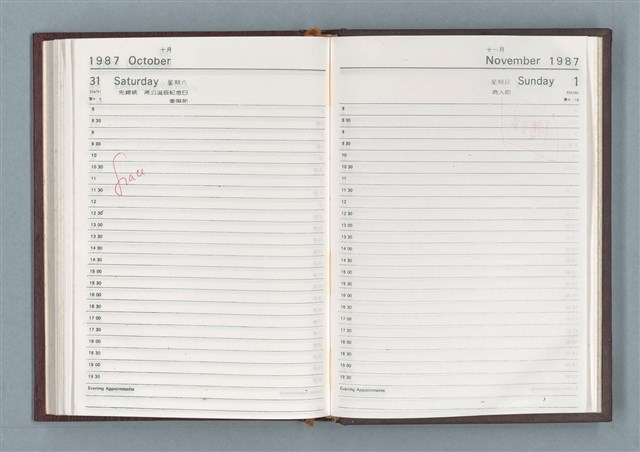 十月
1987 October
31 Saturday 星期六
先總統 蔣公誕辰紀念日
8
8 30
9
9 30
10
10 30
11
11 30
12
12 30
13 00
13 30
14 00
14 30
15 00
15 30
16 00
16 30
17 00
17 30
18 00
18 30
19 00
19 30
Evening Appointments
Grace
十一月
November 1987
星期日 Sunday 1
商人節
8
8 30
9
9 30
10
10 30
11
11 30
12
12 30
13 00
13 30
14 00
14 30
15 00
15 30
16 00
16 30
17 00
17 30
18 00
18 30
19 00
19 30
Evening Appointments